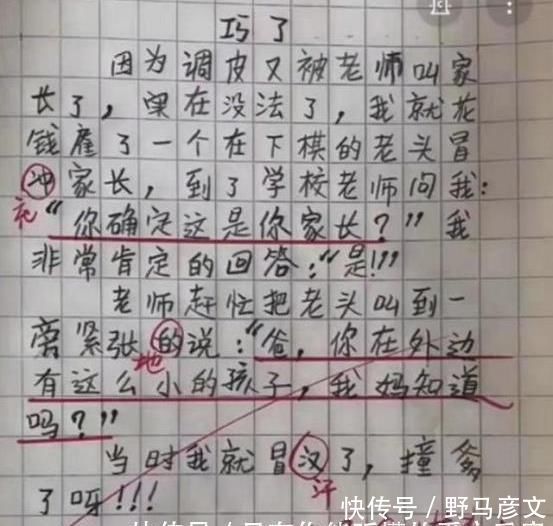 巧了
因为调皮又被老师叫家
长了，实在没法了，我就花
钱雇了一个在下棋的老头冒
冲家长，到了学校老师问我：
充
“你确定这是你家长？”我
非常肯定的回答：“是!!!”
老师赶忙把老头叫到一
旁紧张的说：“爸，你在外边
地
有这么小的孩子，我妈知道
吗？”
当时我就冒汉了，撞爹
汗
了呀!!!
快传号／野马彦文